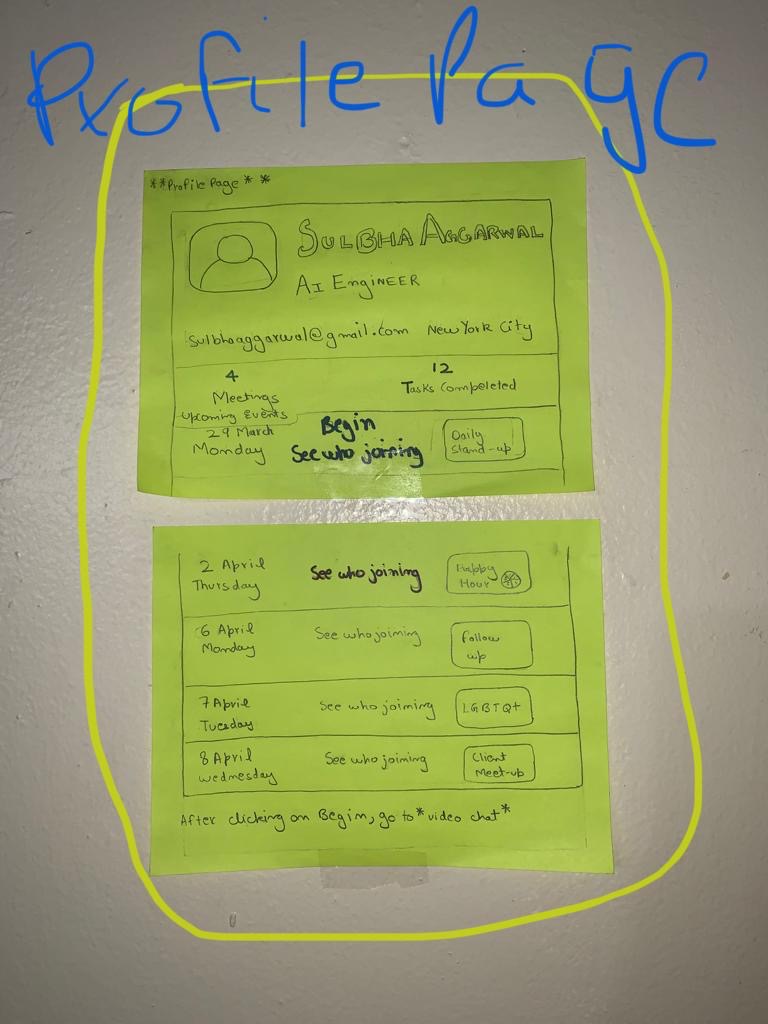 Profile Page
**Profile Page**
SULBHA AGGARWAL
AI EngiNEER
sulbhaaggarwal@gmail.com New York City
4
Meetings
12
Tasks Compeleted
Upcoming Events
29 March
Monday
Begin
See who joining
Daily
Stand-up
2 April
Thursday
See who joining
Happy
Hour
6 April
Monday
See who joining
Follow
up
7 April
Tuesday
See who joining
LGBTQ+
8 April
Wednesday
See who joining
Client
Meet-up
After clicking on Begin, go to *video chat*